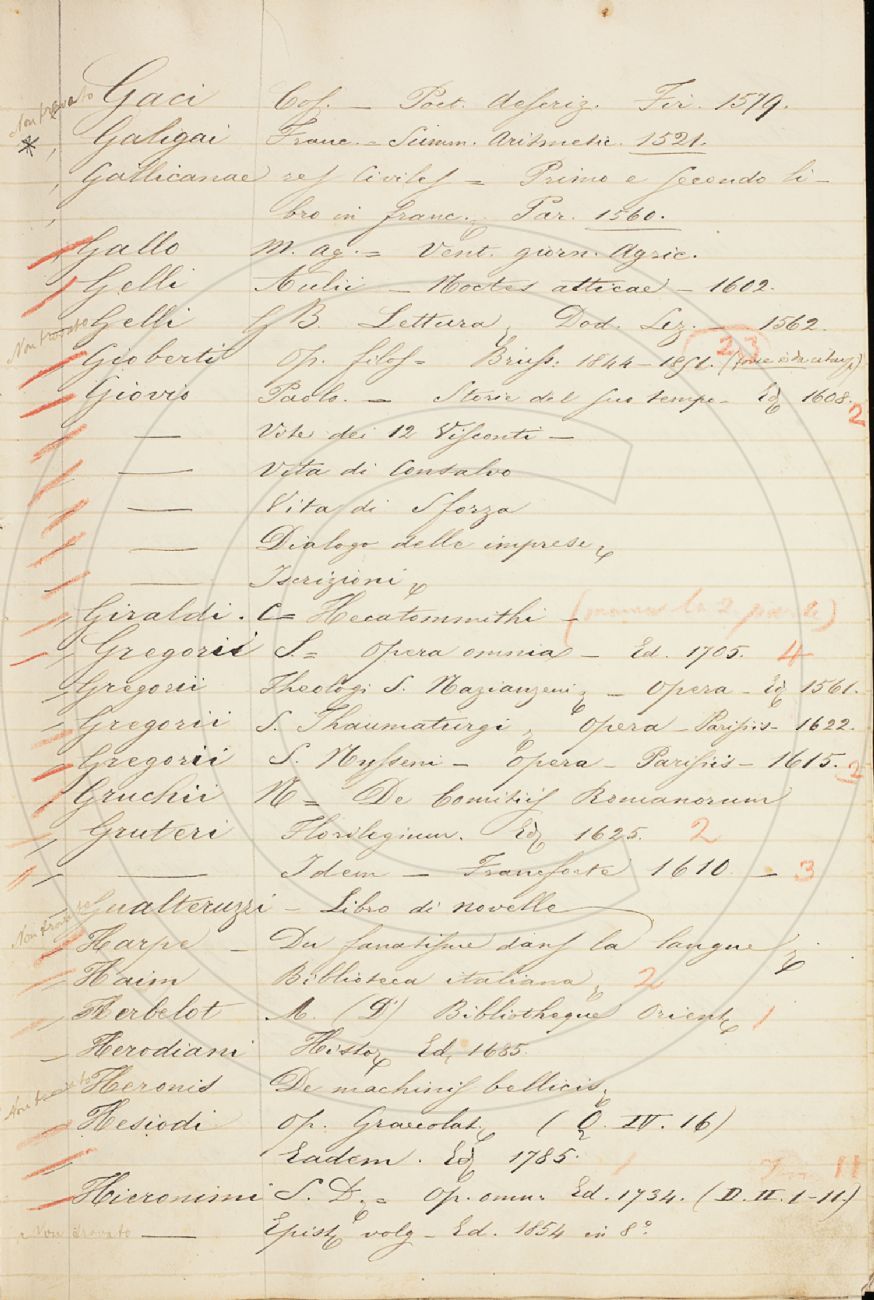 Non trovato Gaci Cos. – Poet. descriz. Fir. 1579.
* Galigai Franc. = Summ. Aritmetic. 1521.
Gallicanae res Civiles = Primo e secondo li-
bro in franc. Par. 1560.
Gallo M. ag. = Vent. giorn. Agric.
Gelli Aulii – Noctes atticae – 1602.
Non trovato Gelli G B. Lettura, Dod. Lez. – 1562.
Gioberti Op. filos = Bruss: 1844–1851. 23
Giovio Paolo. – Storie del suo tempo – Ed 1608. 2
— Vite dei 12 Visconti –
— Vita di Consalvo
— Vita di Sforza
— Dialogo delle imprese
— Iscrizioni
Giraldi. C = Hecatommithi – (manca la 2 parte)
Gregorii S. = Opera omnia – Ed. 1705. 4
Gregorii Theologi S. Nazianzeni – Opera – Ed 1561.
Gregorii S. Thaumaturgi, Opera – Parisiis – 1622.
Gregorii S. Nysseni – Opera – Parisiis – 1615. 2
Gruchii N = De Comitiis Romanorum
Gruteri Florilegium. Ed 1625. 2
— Idem – Francforte 1610 – 3
Gualteruzzi – Libro di novelle
Non trovato Harpe – Du fanatisme dans la langue
Haim Biblioteca italiana 2
Herbelot M. (D') Bibliotheque Orient 1
Herodiani Histor Ed. 1685.
Non trovato Heronis De machinis bellicis
Hesiodi Op. Graecolat. (Q. IV. 16)
Eadem. Ed 1785. 1
Hieronimi S. D. = Op. omn. Ed. 1734. (D. II. 1–11.) 11
Non trovato — Epist volg – Ed. 1854 in 8°.